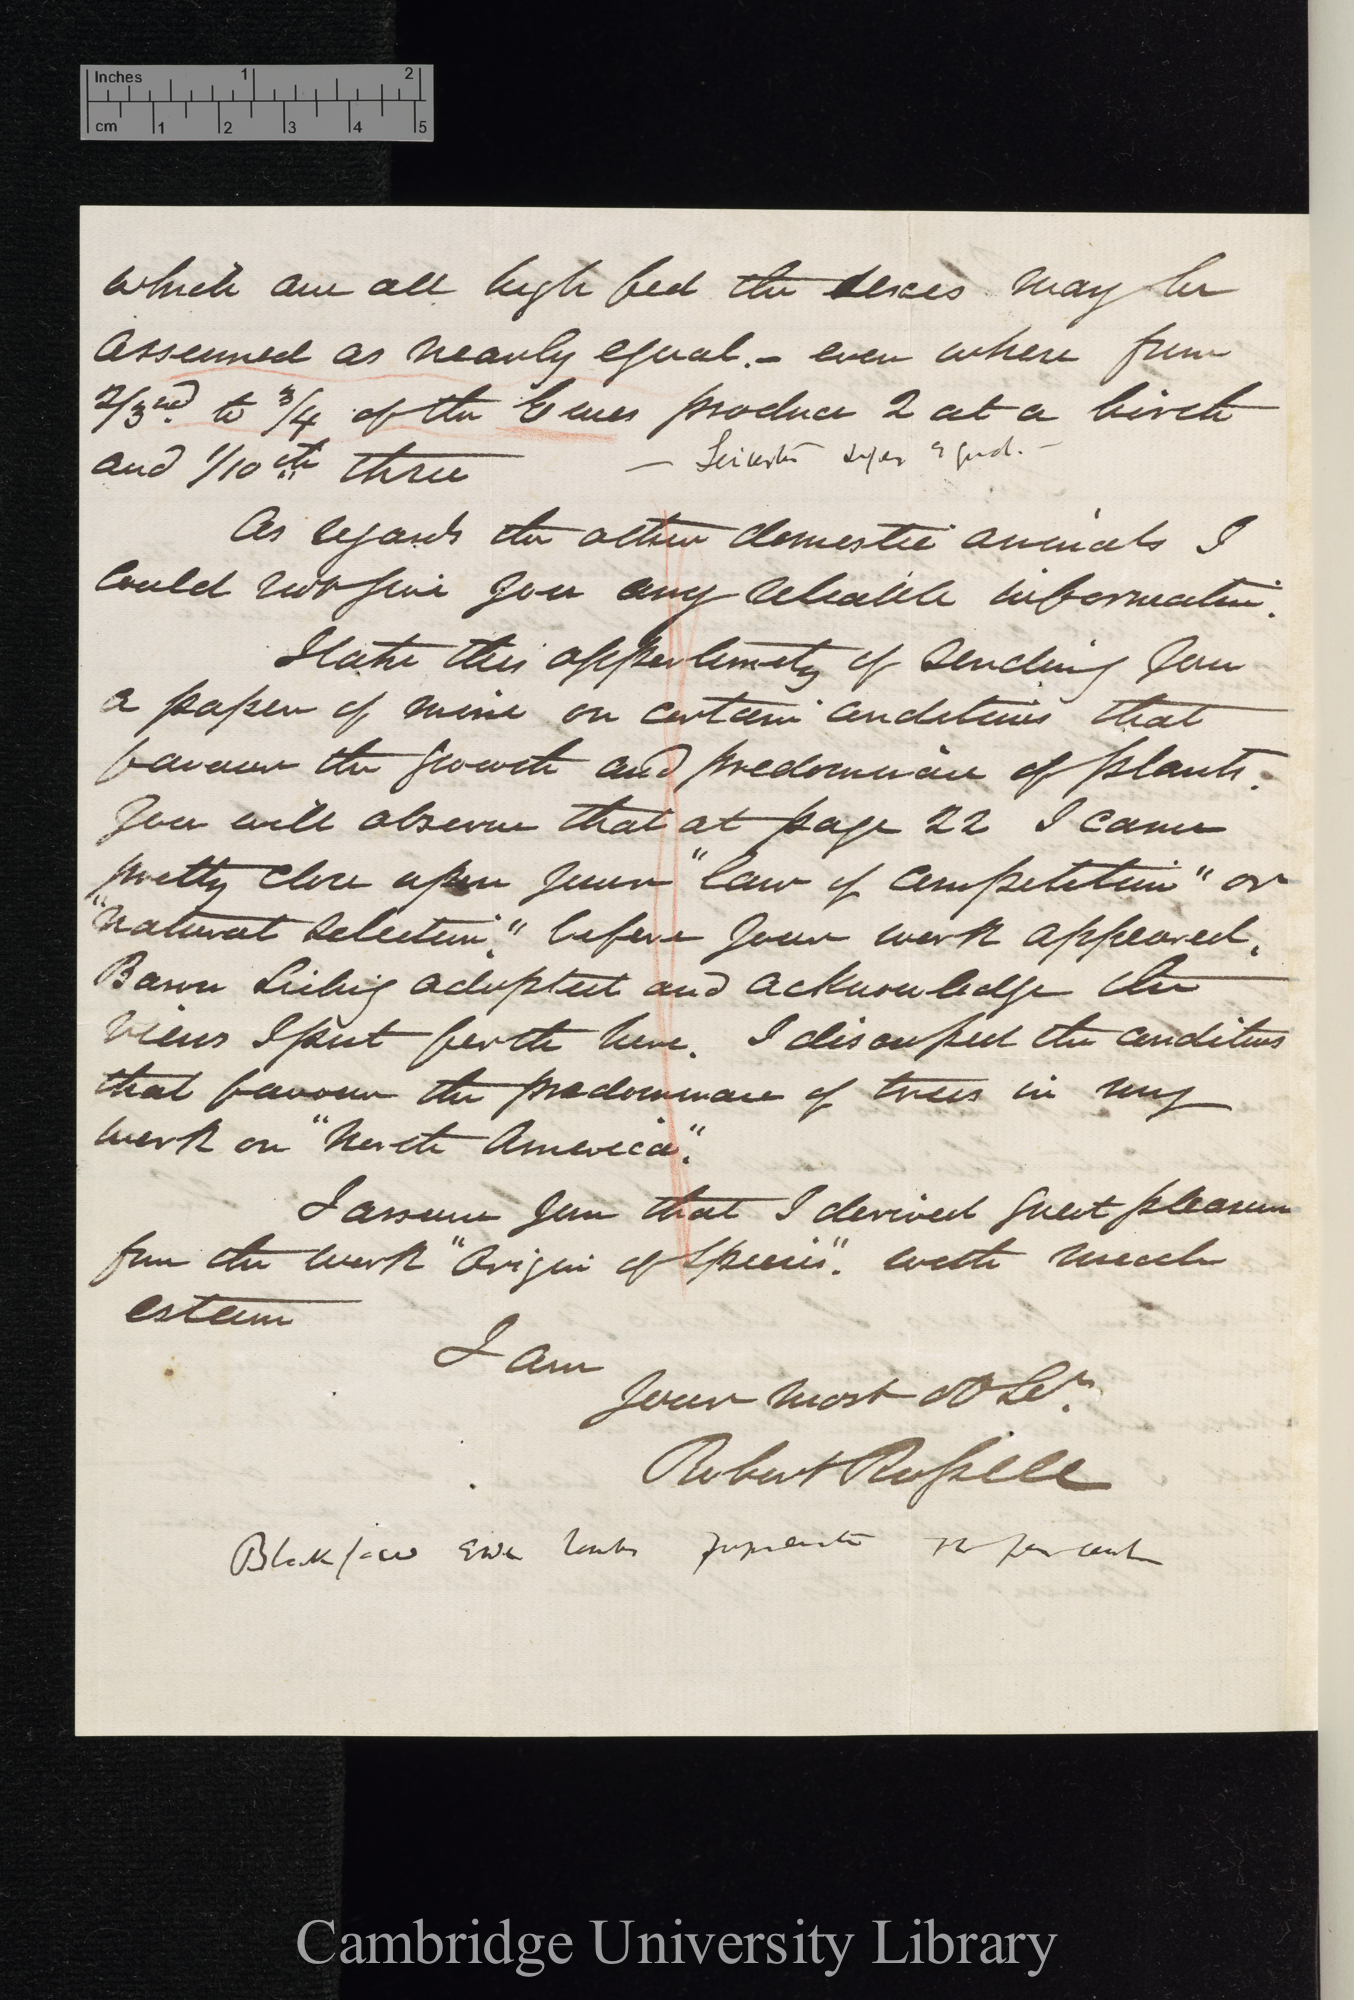 Inches 1 2
cm 1 2 3 4 5
which are all high fed the sexes may be
assumed as nearly equal. – even where from
2/3rd. to 3/4 of the Ewes produce 2 at a birth
and 1/10th three
— Leicester sexes equal. —
As regards the other domestic animals I
could not give you any reliable information.
I take this opportunity of sending you
a paper of mine on certain conditions that
favour the growth and predominance of plants.
You will observe that at page 22 I came
pretty close upon your "law of competition" or
"natural selection." before your work appeared.
Baron Liebig adopted and acknowledge the
views I put forth here. I discussed the conditions
that favour the predominance of trees in my
work on "North America".
I assure you that I derived great pleasure
from the work "Origin of Species". with much
esteem
I am
Your most ob St.
Robert Russell
Blackface Ewe lambs per cent
Cambridge University Library